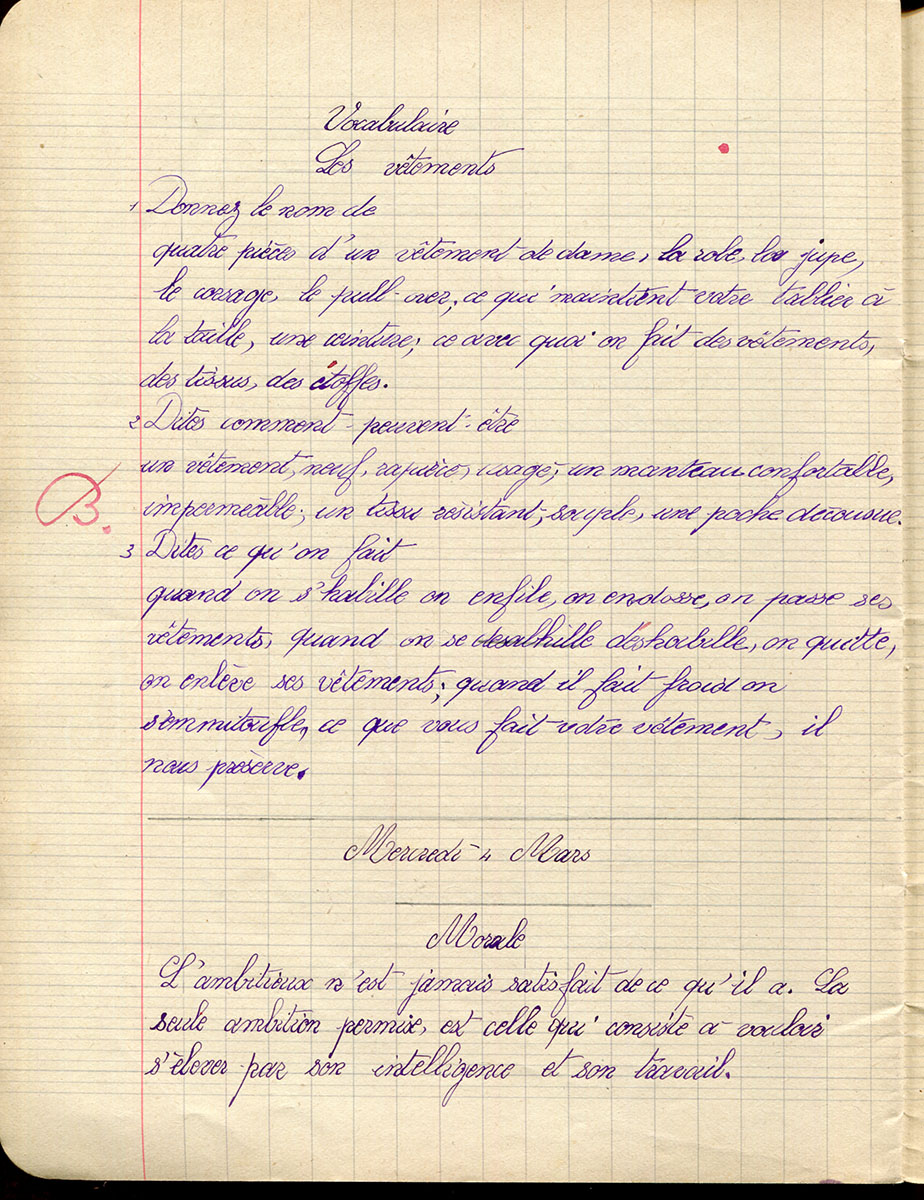 Vocabulaire
Les vêtements
1 Donnez le nom de
quatre pièces d'un vêtement de dame, la robe, la jupe,
le corsage, le pull-over; ce qui maintient votre tablier à
la taille, une ceinture; ce avec quoi on fait des vêtements,
des tissus, des étoffes.
2 Dites comment peuvent être
un vêtement, neuf, rapiécé, usagé; un manteau confortable,
imperméable; un tissu résistant, souple, une poche décousue.
B.
3 Dites ce qu'on fait
quand on s'habille on enfile, on endosse, on passe ses
vêtements, quand on se desalhille déshabille, on quitte,
on enlève ses vêtements; quand il fait froid on
s'emmitoufle, ce que vous fait votre vêtement, il
nous préserve.
Mercredi 4 Mars
Morale
L'ambitieux n'est jamais satisfait de ce qu'il a. La
seule ambition permise, est celle qui consiste à vouloir
s'élever par son intelligence et son travail.